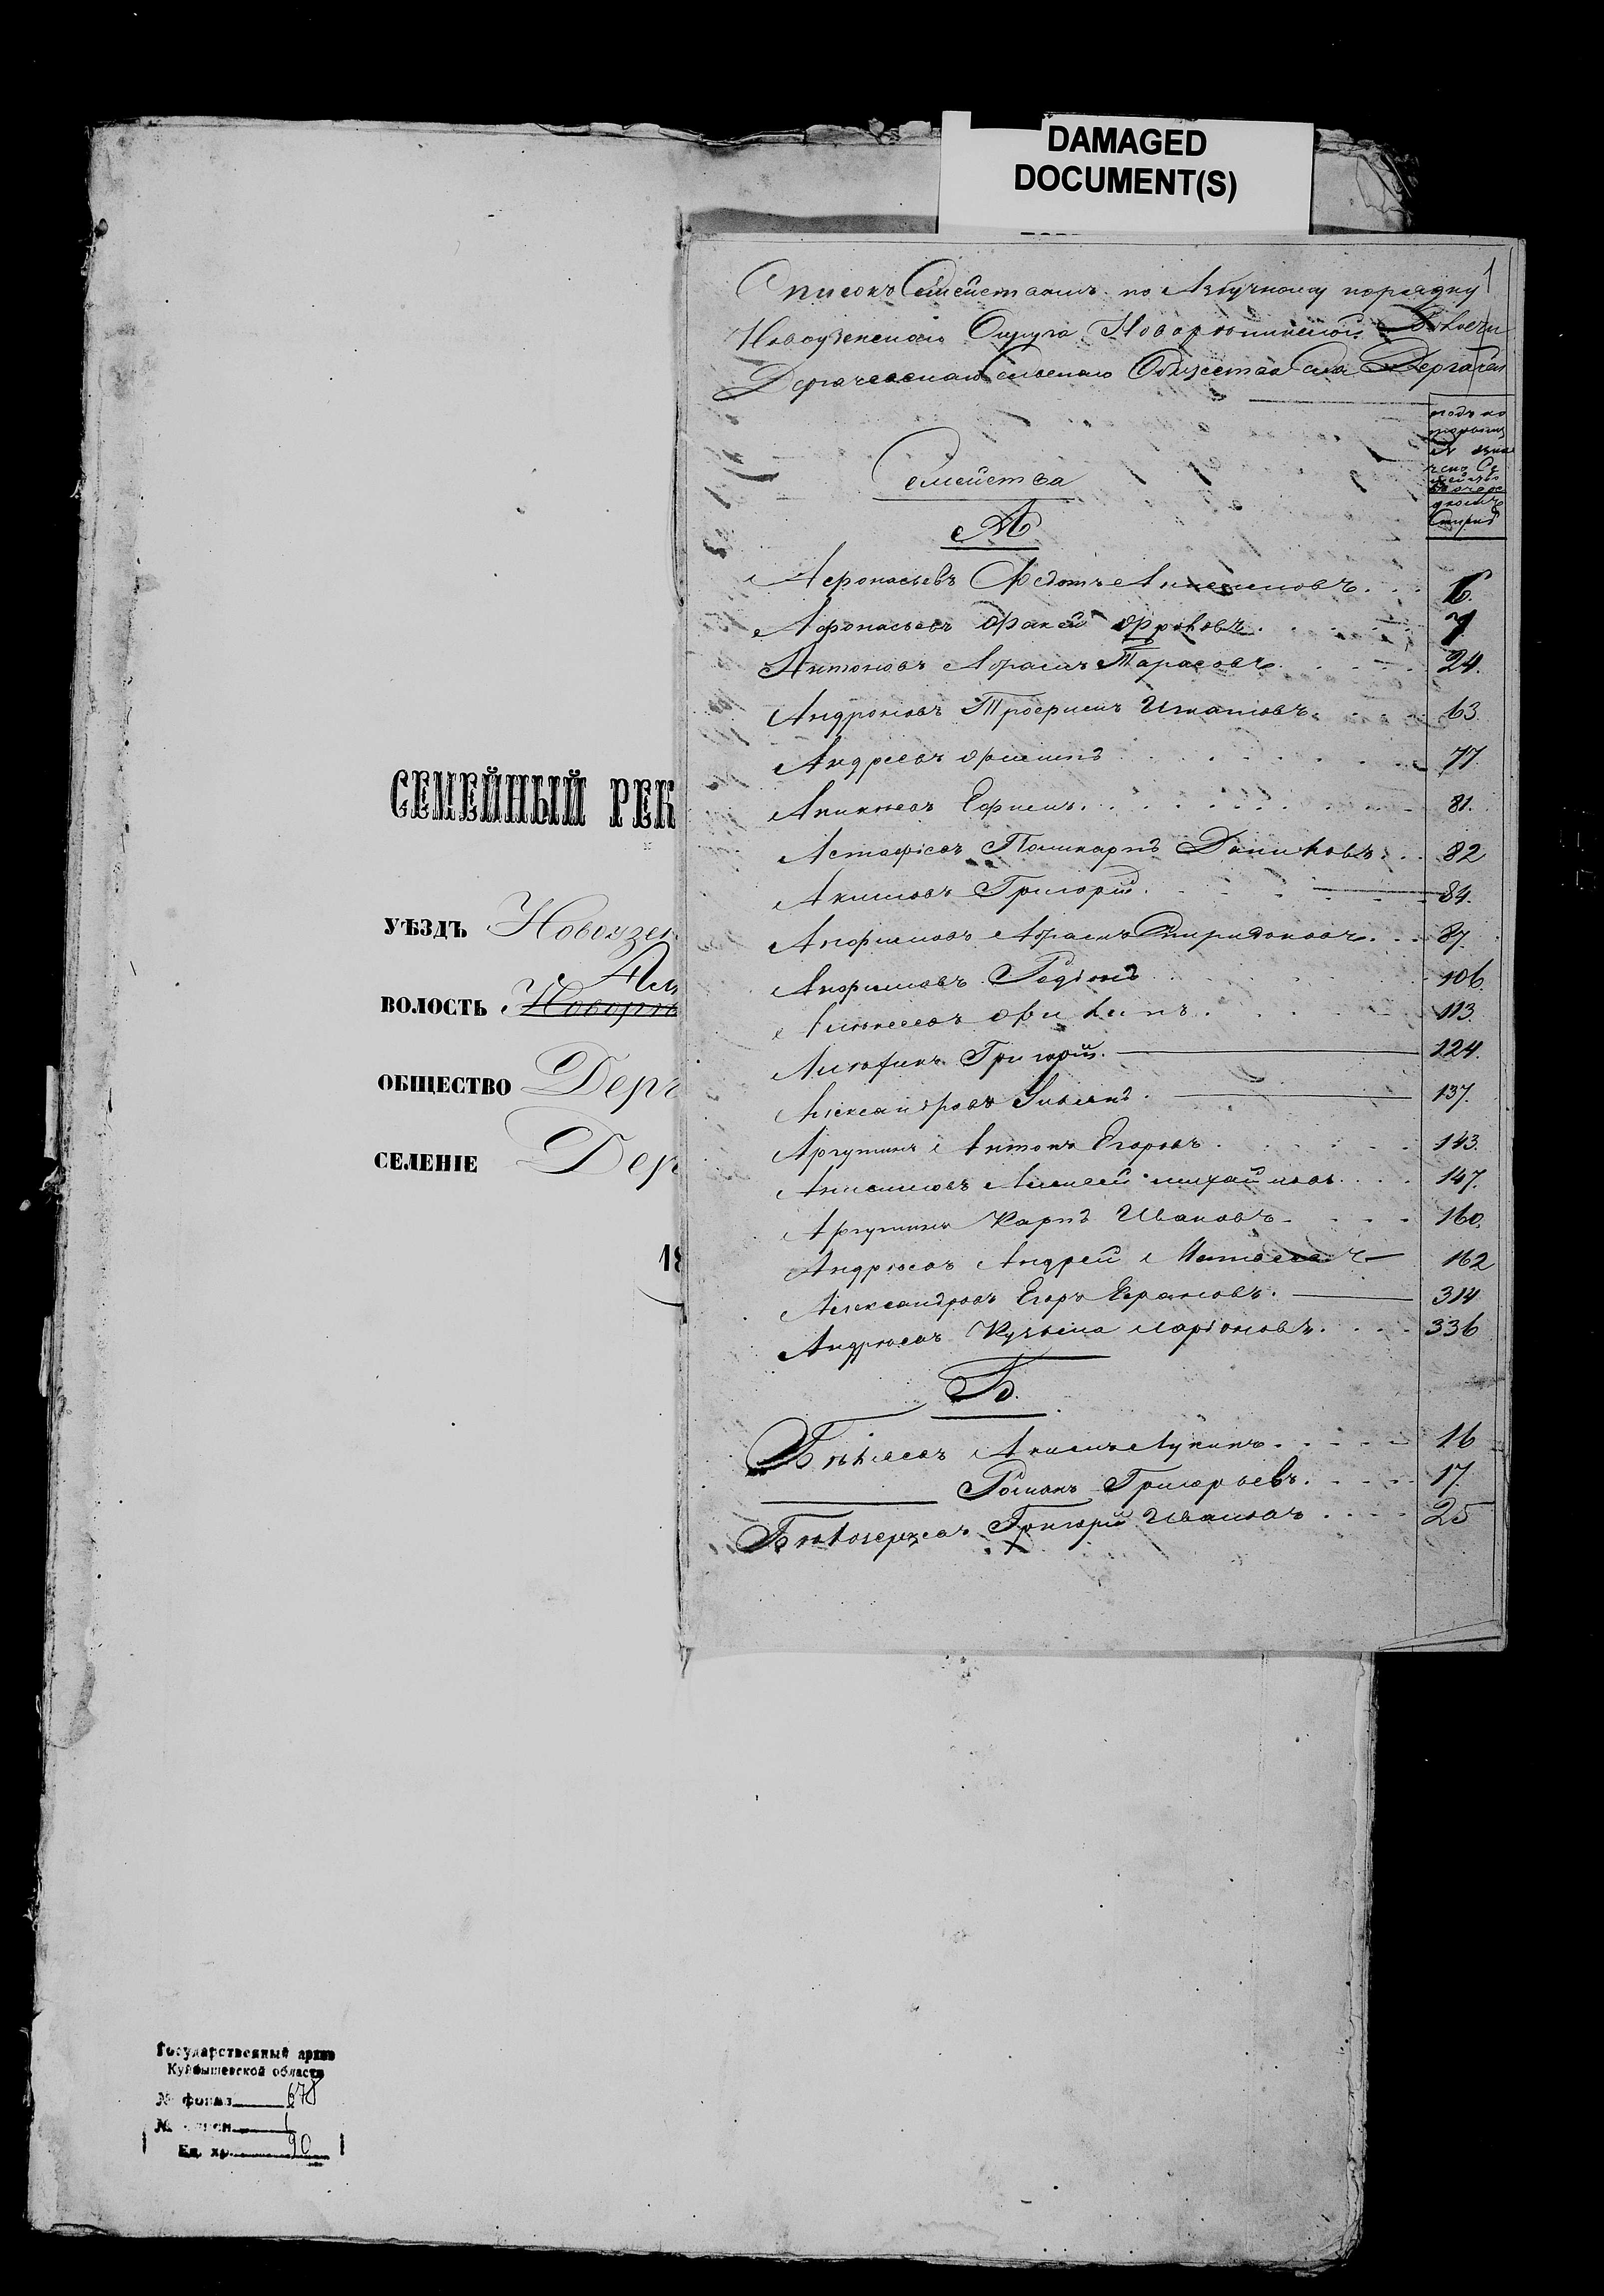 DAMAGED
DOCUMENT(S)
1
Списокъ Семействамъ по Азбучному порядку
Новоузенскаго Округа Новорѣпинской Волости
Дергачевскаго сельскаго Общества села Дергачей
Семейства
А
Афонасьевъ Федотъ 6.
Афонасьевъ Фролов 7
Антоновъ Абрамъ Тарасовъ 24.
Андроновъ Трофимъ Игнатовъ 63
Андреевъ Филипъ 77
Аникѣевъ Ефимъ 81.
Астафіевъ Поликарпъ Даниловъ 82
Акимовъ Григорій 84.
Анфимовъ Абрамъ Спиридоновъ 87
Анфимовъ Родіонъ 106.
Филипъ 113.
Григорій 124.
Александровъ 137.
Аргунинъ Антонъ Егоровъ 143.
Анисимовъ Алексей михайловъ 147.
Аргунинъ Карпъ Ивановъ 160.
Андрѣевъ Андрей Матвеевъ 162
Александровъ Егоръ 314
Андрѣевъ Кузьма ларіоновъ 336
Б.
Акимъ Лукинъ 16
Романъ Григорьевъ 17.
Григорій Ивановъ 25
СЕМЕЙНЫЙ РЕК
УѢЗДЪ Новоузен
ВОЛОСТЬ Новорѣп
ОБЩЕСТВО Дерг
СЕЛЕНІЕ Дер
18
Государственный архив
Куйбышевской области
№ фонда 678
№ описи 1
Ед. хр. 90